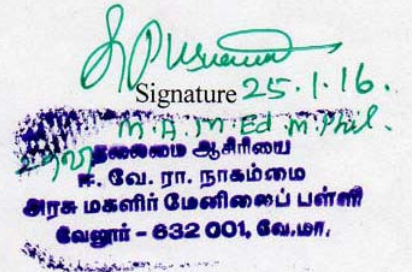 Signature 25.1.16.
M.A.M.Ed.M.Phil.
தலைமை ஆசிரியை
ஈ. வே. ரா. நாகம்மை
அரசு மகளிர் மேனிலைப் பள்ளி
வேலூர் - 632 001, வே.மா.